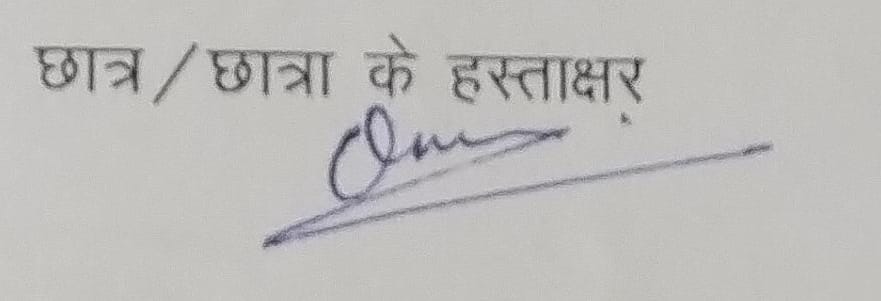 छात्र / छात्रा के हस्ताक्षर